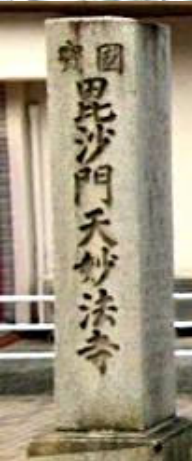 國寳
毘沙門天妙法寺